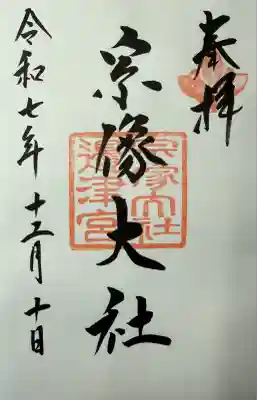 奉拝
宗像大社
宗像大社
邊津宮
令和七年 十二月 十日